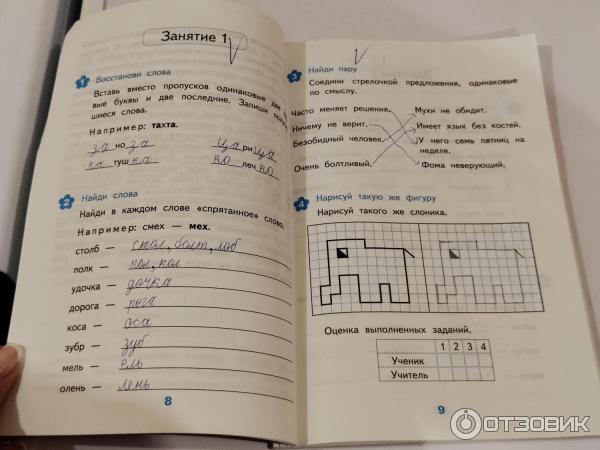 Занятие 1
1 Восстанови слова
Вставь вместо пропусков одинаковые две
вые буквы и две последние. Запиши
шиеся слова.
Например: тахта.
за но за
ца ри ца
ка туш ка
ко леч ко
2 Найди слова
Найди в каждом слове «спрятанное» слово.
Например: смех — мех.
столб — стол, болт, лоб
полк — пол, кол
удочка — дочка
дорога — рога
коса — оса
зубр — зуб
мель — ель
олень — лень
8
3 Найди пару
Соедини стрелочкой предложения, одинаковые
по смыслу.
Часто меняет решения.
Мухи не обидит.
Ничему не верит.
Имеет язык без костей.
Безобидный человек.
У него семь пятниц на
неделе.
Очень болтливый.
Фома неверующий.
4 Нарисуй такую же фигуру
Нарисуй такого же слоника.
Оценка выполненных заданий.
1 2 3 4
Ученик
Учитель
9
ОТЗОВИК